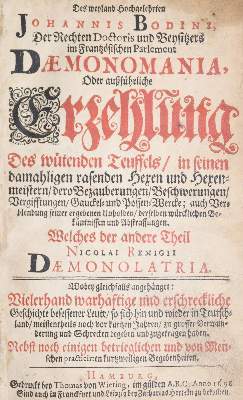 Des weyland Hochgelehrten
JOHANNIS BODINI,
Der Rechten Doctoris und Beysitzers
im Frantzösischen Parlement
DÆMONOMANIA,
Oder außführliche
Erzehlung
Des wütenden Teuffels/ in seinen
damahligen rasenden Hexen und Hexen-
meistern/ dero Bezauberungen/ Beschwerungen/
Vergifftungen/ Gauckel- und Possen-Wercke; auch Ver-
blendung seiner ergebenen Unholden/ derselben würcklichen Be-
käntnissen und Abstraffungen.
Welches der andere Theil
NICOLAI REMIGII
DÆMONOLATRIA.
Wobey gleichfalls angehänget:
Vielerhand warhaftige und erschreckliche
Geschichte besessener Leute/ so sich hin und wieder in Teutsch-
land/ meistentheils noch vor kurtzen Jahren/ zu grosser Verwun-
derung und Schrecken begeben und zugetragen haben.
Nebst noch einigen betrieglichen und von Men-
schen practicirten kurtzweiligen Begebenheiten.
HAMBURG,
Gedruckt bey Thomas von Wiering/ im gülden A,B,C, Anno 1698
Sind auch in Franckfurt und Leipzig bey Zacharias Herteln zu bekommen.